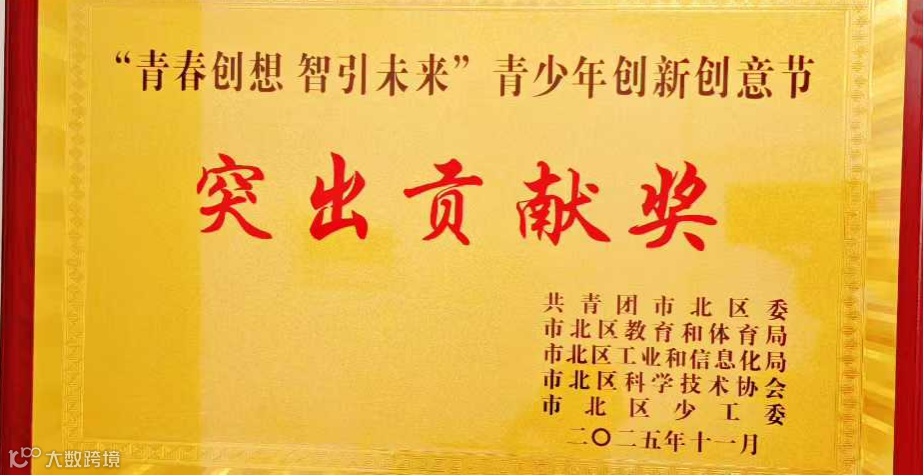 “青春创想 智引未来”青少年创新创意节
突出贡献奖
共青团市北区委
市北区教育和体育局
市北区工业和信息化局
市北区科学技术协会
市北区少工委
二〇二五年十一月
大数跨境